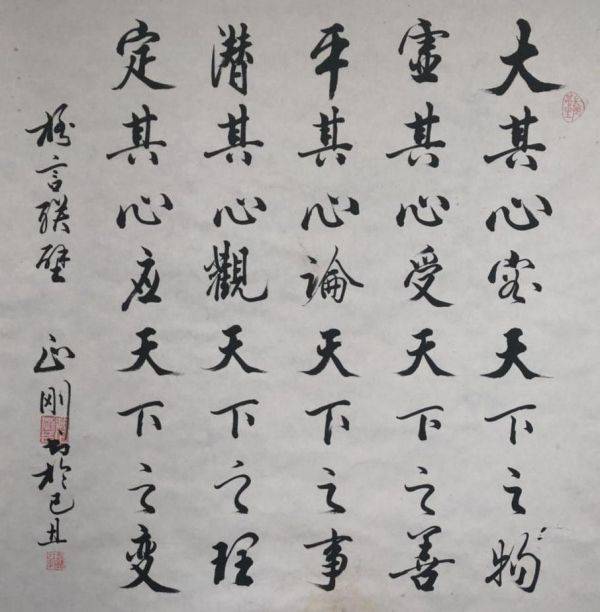 大其心容天下之物
虚其心受天下之善
平其心論天下之事
潜其心觀天下之理
定其心应天下之变
格言联璧
正刚书於己丑